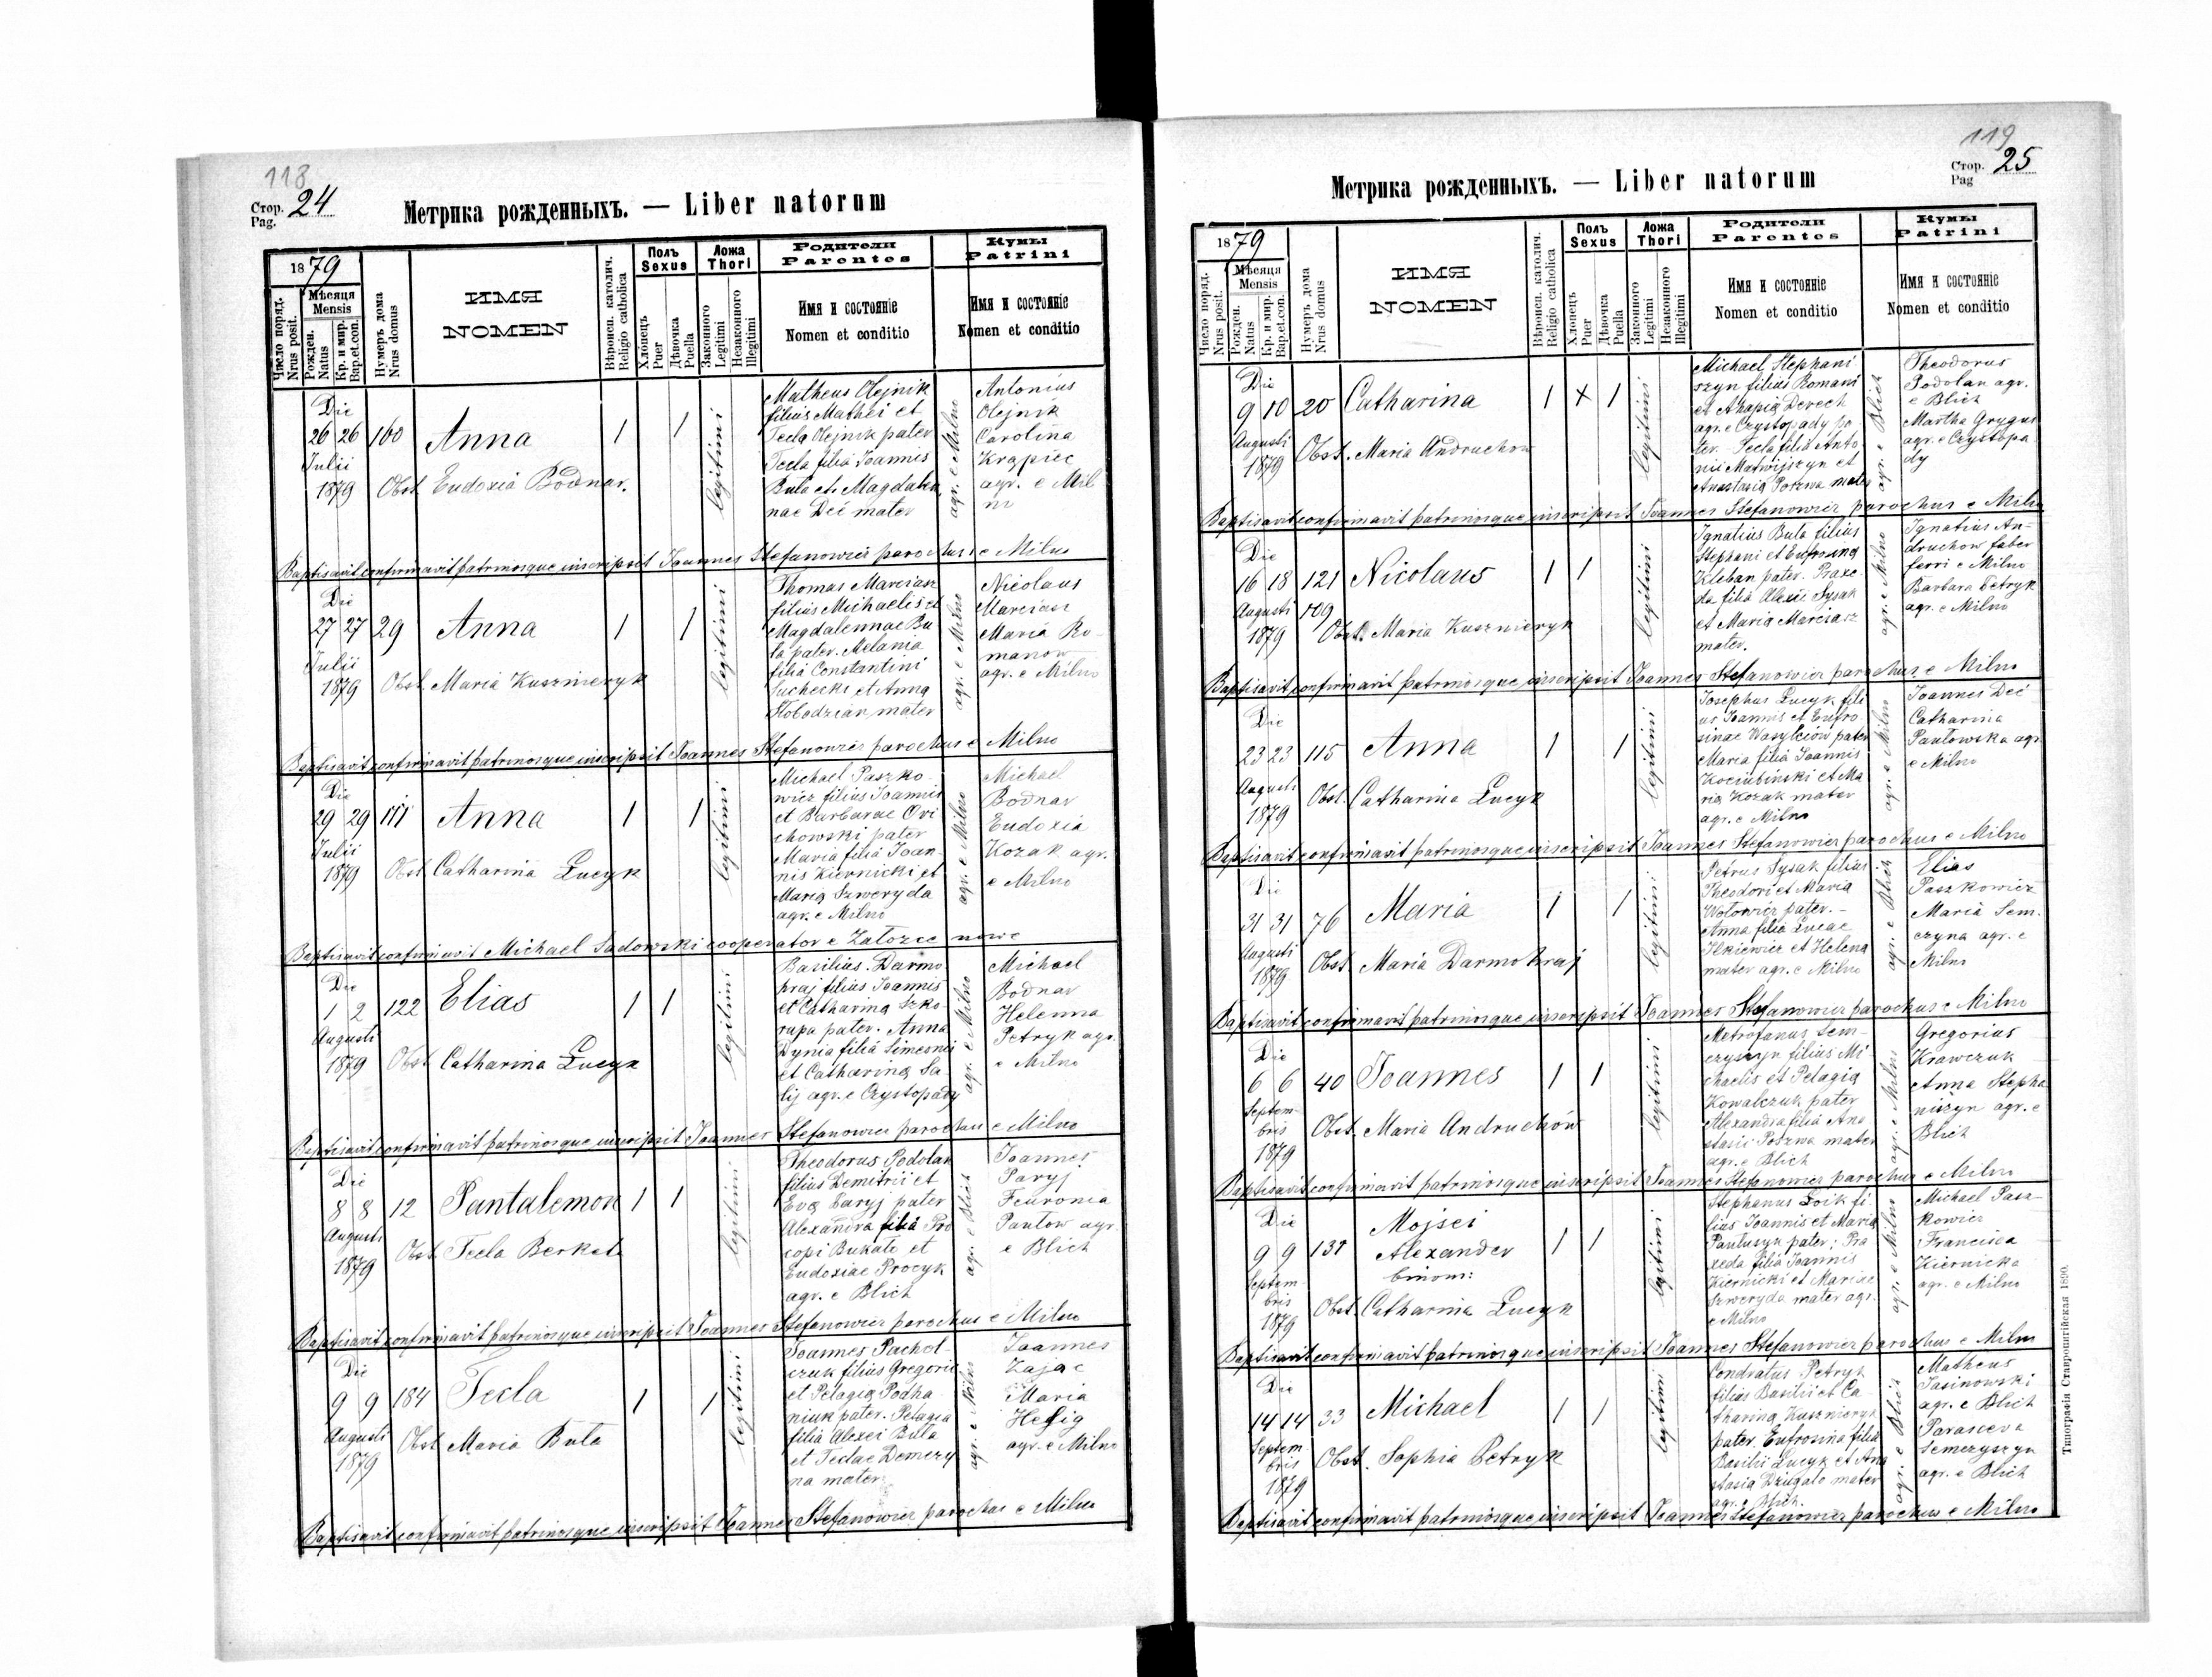 118
Стор. 24
Pag.
Метрика рожденныхъ. — Liber natorum
1879
Число поряд.
Nrus posit.
Мѣсяця
Mensis
Рожден.
Natus
Кр. и мир.
Bap.et.con.
Нумеръ дома
Nrus domus
ИМЯ
NOMEN
Вѣроисп. католич.
Religio catholica
Полъ
Sexus
Хлопецъ
Puer
Дѣвочка
Puella
Ложа
Thori
Законного
Legitimi
Незаконного
Illegitimi
Родители
Parentes
Имя и состояніе
Nomen et conditio
Кумы
Patrini
Имя и состояніе
Nomen et conditio
Die
26 26 160 Anna 1 1 legitimi
Julii
1879 Obst. Eudoxia Bodnar.
Matheus Olejnik
filius Mathei et
Tecla Olejnik pater
Tecla filia Joannis
Bula et Magdalen
nae Deć mater
agr. e Milno
Antonius
Olejnik
Carolina
Krąpiec
agr. e Mil
no
Baptisavit confirmavit patrinosque inscripsit Joannes Stefanowicz parochus e Milno
Die
27 27 29 Anna 1 1 legitimi
Julii
1879 Obst. Maria Kusznieryk
Thomas Marciasz
filius Michaelis et
Magdalennae Bu
la pater. Melania
filia Constantini
Suchecki et Anna
Slobodzian mater
agr. e Milno
Nicolaus
Marciasz
Maria Ro-
manow
agr. e Milno
Baptisavit confirmavit patrinosque inscripsit Joannes Stefanowicz parochus e Milno
Die
29 29 111 Anna 1 1 legitimi
Julii
1879 Obst. Catharina Lucyk
Michael Paszko
wicz filius Joannis
et Barbarae Ori
chowski pater
Maria filia Joan
nis Kiernicki et
Maria Szweryda
agr. e Milno
agr. e Milno
Michael
Bodnar
Eudoxia
Kozak agr.
e Milno
Baptisavit confirmavit Michael Sadowski cooperator e Załozce nowe
Die
1 2 122 Elias 1 1 legitimi
Augusti
1879 Obst. Catharina Lucyk
Basilius Darmo
hraj filius Joannis
et Catharina Szko
rupa pater. Anna
Dynia filia Simeonis
et Catharina Sa
lij agr. e Czystopady
agr. e Milno
Michael
Bodnar
Helenna
Petryk agr.
e Milno
Baptisavit confirmavit patrinosque inscripsit Joannes Stefanowicz parochus e Milno
Die
8 8 12 Pantalemon 1 1 legitimi
Augusti
1879 Obst. Tecla Berkat
Theodorus Podolan
filius Demitrii et
Eva Paryj pater
Alexandra filia Pro
copi Bukato et
Eudoxiae Procyk
agr. e Blich
agr. e Blich
Joannes
Paryj
Feuronia
Pantow agr.
e Blich
Baptisavit confirmavit patrinosque inscripsit Joannes Stefanowicz parochus e Milno
Die
9 9 184 Tecla 1 1 legitimi
Augusti
1879 Obst. Maria Bula
Joannes Pachol-
czuk filius Gregorie
et Pelagia Podha
niuk pater. Pelagia
filia Alexei Bula
et Teclae Demczy
na mater
agr. e Milno
Joannes
Zając
Maria
Heflig
agr. e Milno
Baptisavit confirmavit patrinosque inscripsit Joannes Stefanowicz parochus e Milno
119
Стор. 25
Pag
Метрика рожденныхъ. — Liber natorum
1879
Число поряд.
Nrus posit.
Мѣсяця
Mensis
Рожден.
Natus
Кр. и мир.
Bap.et.con.
Нумеръ дома
Nrus domus
ИМЯ
NOMEN
Вѣроисп. католич.
Religio catholica
Полъ
Sexus
Хлопецъ
Puer
Дѣвочка
Puella
Ложа
Thori
Законного
Legitimi
Незаконного
Illegitimi
Родители
Parentes
Имя и состояніе
Nomen et conditio
Кумы
Patrini
Имя и состояніе
Nomen et conditio
Die
9 10 20 Catharina 1 + 1 legitimi
Augusti
1879 Obst. Maria Andruchow
Michael Stephani
szyn filius Romani
et Ahapia Derech
agr. e Czystopady pa
ter. Tecla filia Anto
nii Matwijszyn et
Anastasia Poszwa mater
agr. e Blich
Theodorus
Podolan agr.
e Blich
Martha Grygus
agr. e Czystopa
dy
Baptisavit confirmavit patrinosque inscripsit Joannes Stefanowicz parochus e Milno
Die
16 18 121 Nicolaus 1 1 legitimi
Augusti 109
1879 Obst. Maria Kusznieryk
Ignatius Bula filius
Stephani et Eufrosina
Kleban pater. Praxe
da filia Alexii Sysak
et Maria Marciasz
mater.
agr. e Milno
Ignatius An-
druchow faber
ferri e Milno
Barbara Petryk
agr. e Milno
Baptisavit confirmavit patrinosque inscripsit Joannes Stefanowicz parochus e Milno
Die
23 23 115 Anna 1 1 legitimi
Augusti
1879 Obst. Catharina Lucyk
Josephus Lucyk fili
us Joannis et Eufro
sinae Wasylciów pater
Maria filia Joannis
Kociubinski et Ma
ria Kozak mater
agr. e Milno
agr. e Milno
Joannes Deć
Catharina
Pawłowska agr.
e Milno
Baptisavit confirmavit patrinosque inscripsit Joannes Stefanowicz parochus e Milno
Die
31 31 76 Maria 1 1 legitimi
Augusti
1879 Obst. Maria Darmohraj
Petrus Sysak filius
Theodori et Maria
Wołowicz pater.-
Anna filia Lucae
Ilkiewicz et Helena
mater agr. e Milno
agr. e Blich
Elias
Paszkowicz
Maria Sem.
czyna agr. e
Milno
Baptisavit confirmavit patrinosque inscripsit Joannes Stefanowicz parochus e Milno
Die
6 6 40 Joannes 1 1 legitimi
Septem-
bris Obst. Maria Andruchów
1879
Metrofanus Sem-
czyszyn filius Mi-
chaelis et Pelagia
Kowalczuk pater
Alexandra filia Ana
stasii Poszwa mater
agr. e Blich
agr. e Milno
Gregorius
Krawczuk
Anna Stepha
niszyn agr. e
Blich
Baptisavit confirmavit patrinosque inscripsit Joannes Stefanowicz parochus e Milno
Die Mojsei
9 9 137 Alexander 1 1 legitimi
Septem binom:
bris Obst. Catharina Lucyk
1879
Stephanus Loik fi
lius Joannis et Maria
Pautuszyk pater; Pra
xeda filia Joannis
Kiernicki et Mariae
Szweryda mater agr.
e Milno
agr. e Milno
Michael Pasz-
kowicz
Francisca
Kiernicka
agr. e Milno
Baptisavit confirmavit patrinosque inscripsit Joannes Stefanowicz parochus e Milno
Die
14 14 33 Michael 1 1 legitimi
Septem
bris Obst. Sophia Petryk
1879
Condratus Petryk
filius Basilii et Ca
tharina Kusznieryk
pater. Eufrosina filia
Basilii Lucyk et Ana
stasia Dziugało mater
agr. e Blich.
agr. e Blich
Matheus
Jasinowski
agr. e Blich
Parasceva
Semczyszyn
agr. e Blich
Baptisavit confirmavit patrinosque inscripsit Joannes Stefanowicz parochus e Milno
Типографія Ставропигійская 1890.